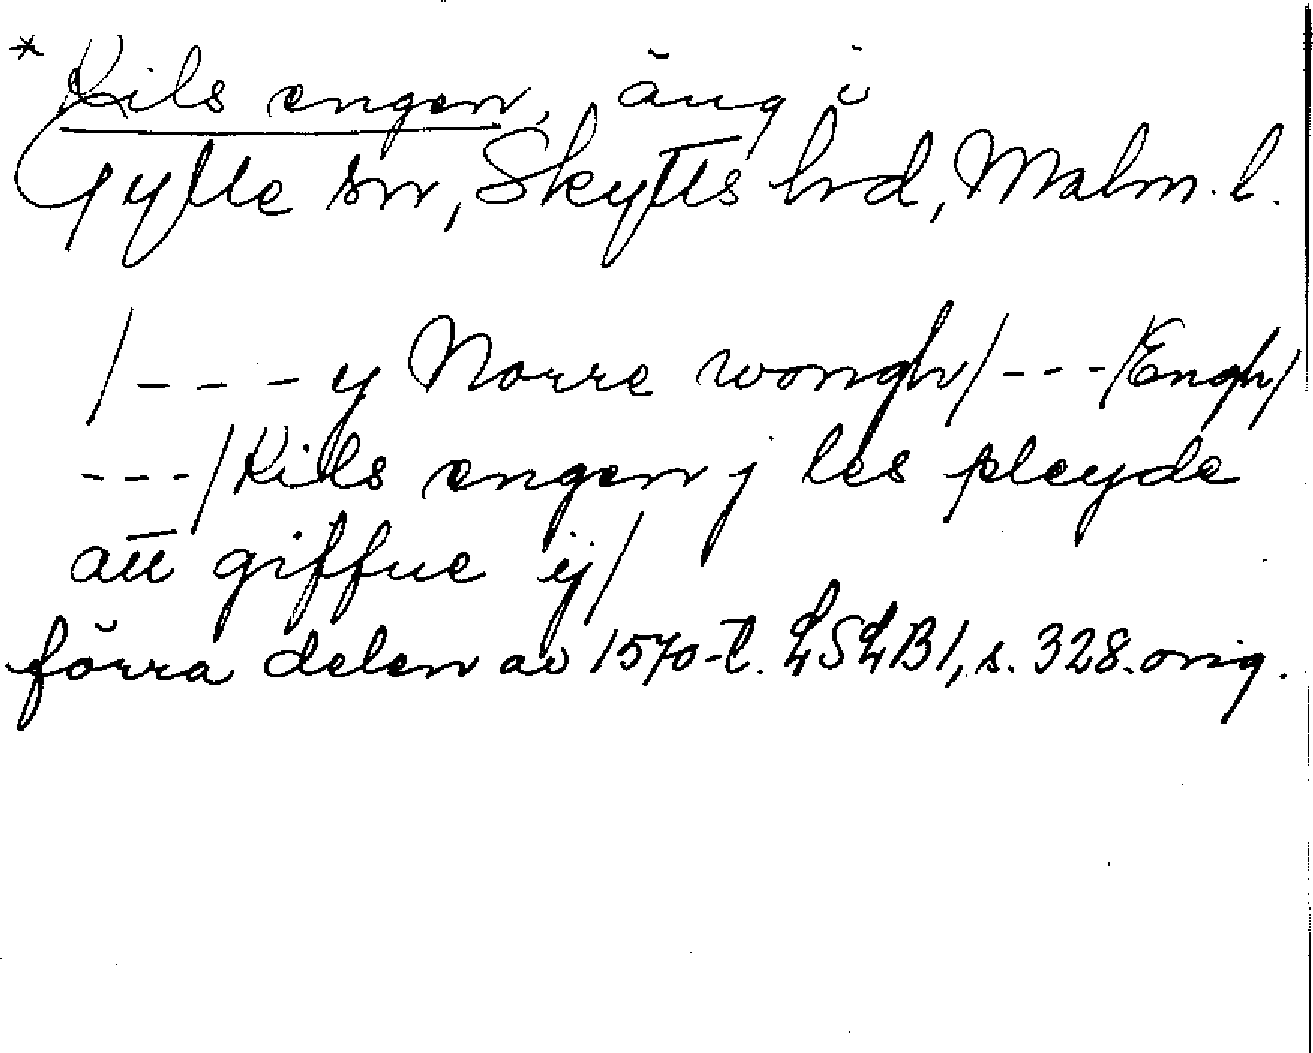 * Kils engen, äng i
Gylle sn, Skytts hrd, Malm. l.
/- - - y Norre wongh/ - - - /Engh/
- - - /Kils engen j les pleyde
att giffue ij/
förra delen av 1570-t. LSLB1, s. 328. orig.